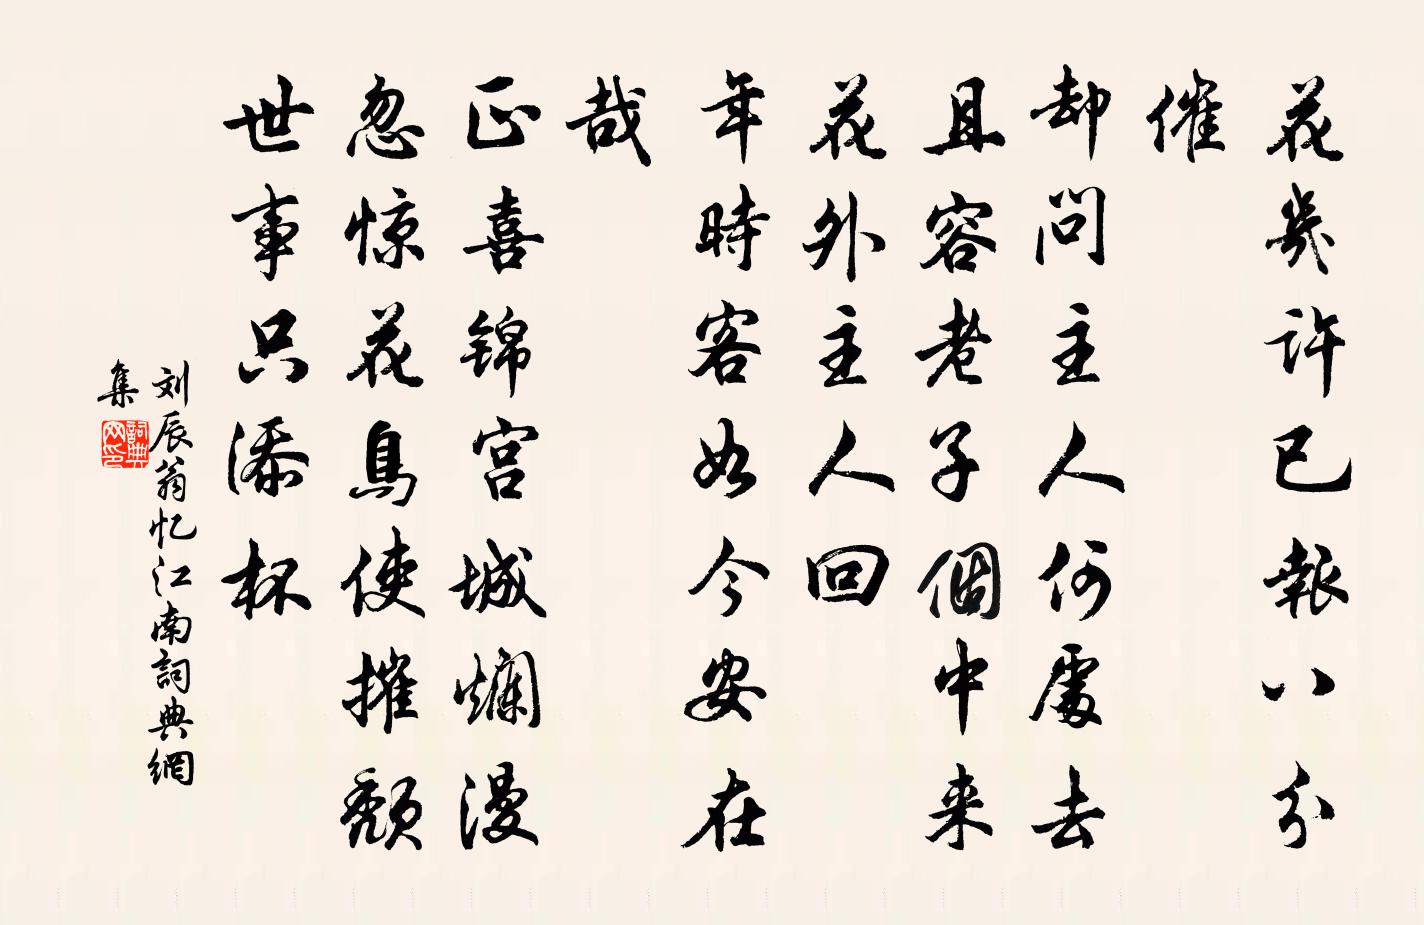 花幾許已報八分
催
却問主人何處去
且容老子個中来
花外主人回
年時客如今安在
哉
正喜锦宫城爛漫
忽惊花鳥使摧颓
世事只添杯
刘辰翁忆江南詞典網
集
詞典網印